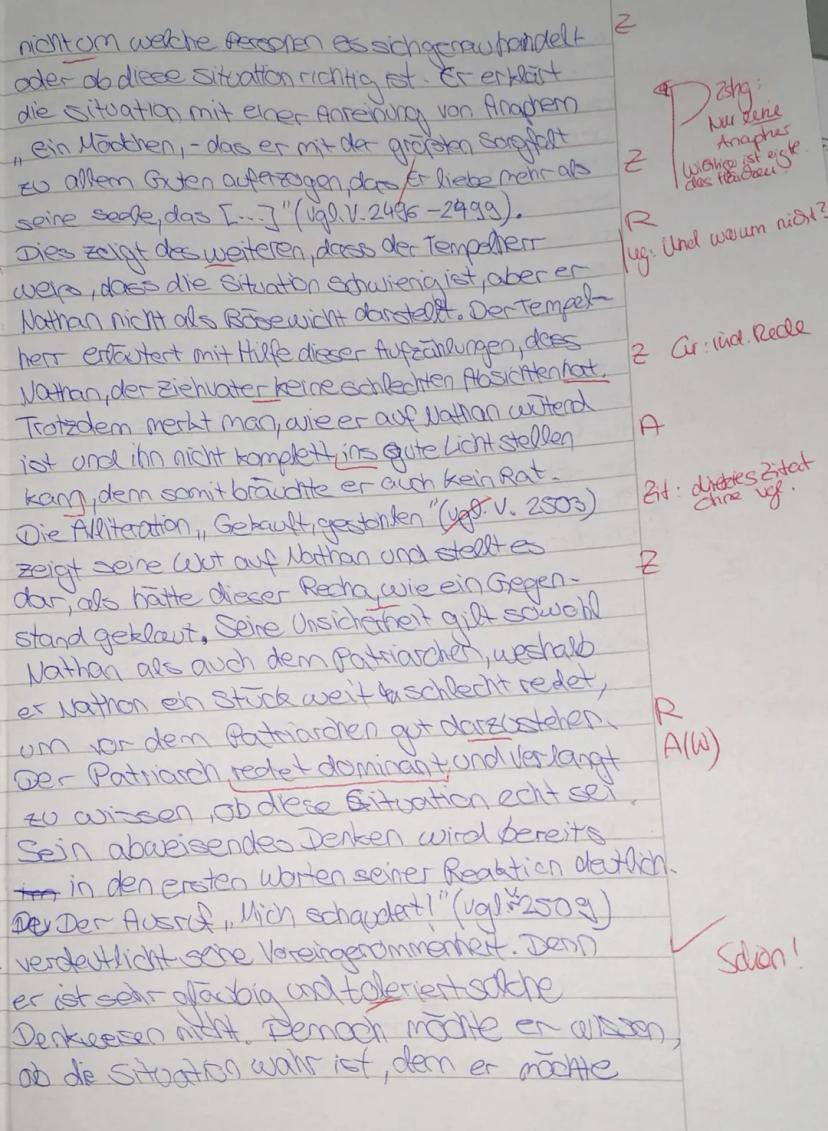 nicht um welche Personen es sich genau handelt
oder ob diese Situation richtig ist. Er erklärt
die Situation mit einer Anreihung von Anaphern
„ ein Mädchen, - das er mit der größten Sorgfalt
zu allem Guten auferzogen, das Er liebe mehr als
seine Seele, das [...]" (vgl. V. 2496 - 2499).
Dies zeigt des weiteren, dass der Tempelherr
weiß, dass die Situation schwierig ist, aber er
Nathan nicht als Bösewicht darstellt. Der Tempel-
herr erläutert mit Hilfe dieser Aufzählungen, dass
Nathan, der Ziehvater keine schlechten Absichten hat.
Trotzdem merkt man, wie er auf Nathan wütend
ist und ihn nicht komplett ins gute Licht stellen
kann, denn somit bräuchte er auch kein Rat.
Die Alliteration „ Gekauft, gestohlen" (vgl. V. 2503)
zeigt seine Wut auf Nathan und stellt es
dar, als hätte dieser Recha, wie ein Gegen-
stand geklaut. Seine Unsicherheit gilt sowohl
Nathan als auch dem Patriarchen, weshalb
er Nathan ein Stück weit schlecht redet,
um vor dem Patriarchen gut darzustehen.
Der Patriarch redet dominant, und verlangt
zu wissen, ob diese Situation echt sei.
Sein abweisendes Denken wird bereits
im in den ersten Worten seiner Reaktion deutlich.
Der Der Ausruf „ Mich schaudert!" (vgl. V. 2509)
verdeutlicht seine Voreingenommenheit. Denn
er ist sehr gläubig und toleriert solche
Denkweisen nicht. Dennoch möchte er wissen,
ob die Situation wahr ist, denn er möchte
Z
Zshg:
Nur keine
Anapher
Wichtige ist
das
Z
R
Und warum nicht?
Z Gr: ind. Rede
A
Zit: direktes Zitat
ohne vgl.
Z
R
A(W)
Schön!